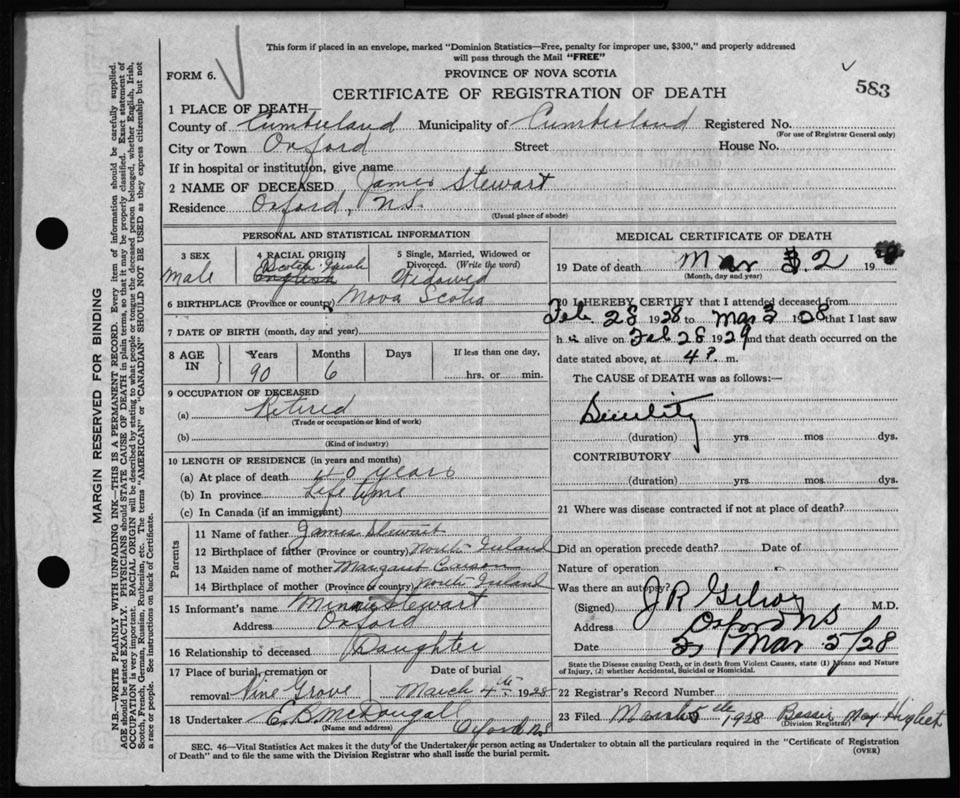 This form if placed in an envelope, marked "Dominion Statistics—Free, penalty for improper use, $300," and properly addressed
will pass through the Mail "FREE"
FORM 6.
PROVINCE OF NOVA SCOTIA
CERTIFICATE OF REGISTRATION OF DEATH
583
1 PLACE OF DEATH—
County of Cumberland Municipality of Cumberland Registered No.
(For use of Registrar General only)
City or Town Oxford Street House No.
If in hospital or institution, give name
2 NAME OF DECEASED James Stewart
Residence Oxford, N.S.
(Usual place of abode)
MARGIN RESERVED FOR BINDING
N.B.—WRITE PLAINLY WITH UNFADING INK—THIS IS A PERMANENT RECORD. Every item of information should be carefully supplied.
AGE should be stated EXACTLY. PHYSICIANS should STATE CAUSE OF DEATH in plain terms, so that it may be properly classified. Exact statement of
OCCUPATION is very important. RACIAL ORIGIN will be described by stating to what people or tongue the deceased person belonged, whether English, Irish,
Scotch, French, German, Russian, Ruthenian, etc. The terms "AMERICAN" or "CANADIAN" SHOULD NOT BE USED as they express citizenship but not
a race or people. See instructions on back of Certificate.
PERSONAL AND STATISTICAL INFORMATION
3 SEX
Male
4 RACIAL ORIGIN
Scotch Irish
English
5 Single, Married, Widowed or
Divorced. (Write the word)
Widowed
6 BIRTHPLACE (Province or country) Nova Scotia
7 DATE OF BIRTH (month, day and year)
8 AGE IN
Years Months Days If less than one day,
90 6 hrs. or min.
9 OCCUPATION OF DECEASED
(a) Retired
(Trade or occupation or kind of work)
(b)
(Kind of industry)
10 LENGTH OF RESIDENCE (in years and months)
(a) At place of death 40 years
(b) In province Life time
(c) In Canada (if an immigrant)
Parents
11 Name of father James Stewart
12 Birthplace of father (Province or country) North Ireland
13 Maiden name of mother Margaret Carson
14 Birthplace of mother (Province or country) North Ireland
15 Informant's name Minnie Stewart
Address Oxford
16 Relationship to deceased Daughter
17 Place of burial, cremation or Date of burial
removal Pine Grove March 4th 1928
18 Undertaker E. B. McDougall
(Name and address) Oxford NS
MEDICAL CERTIFICATE OF DEATH
19 Date of death Mar 2 19
(Month, day and year)
20 I HEREBY CERTIFY that I attended deceased from
Feb. 28 1928 to Mar 3 1928 that I last saw
h alive on Feb 28 1929 and that death occurred on the
date stated above, at 4 P. m.
The CAUSE of DEATH was as follows:—
Senility
(duration) yrs mos dys.
CONTRIBUTORY
(duration) yrs. mos. dys.
21 Where was disease contracted if not at place of death?
Did an operation precede death? Date of
Nature of operation
Was there an autopsy?
(Signed) J R Gilroy M.D.
Address Oxford NS
Date Mar 5/28
State the Disease causing Death, or in death from Violent Causes, state (1) Means and Nature
of Injury, (2) whether Accidental, Suicidal or Homicidal.
22 Registrar's Record Number
23 Filed March 5th 1928 Bessie May
(Division Registrar)
SEC. 46—Vital Statistics Act makes it the duty of the Undertaker or person acting as Undertaker to obtain all the particulars required in the "Certificate of Registration
of Death" and to file the same with the Division Registrar who shall issue the burial permit.
(OVER)